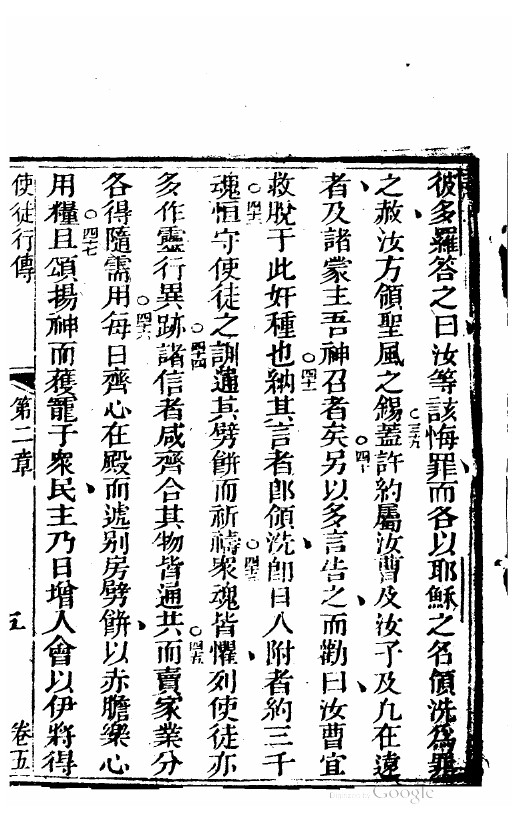 彼多羅答之曰汝等該悔罪而各以耶穌之名領洗爲罪
之赦汝方領聖風之錫○三九蓋許約屬汝曹及汝子及凢在遠
者及諸蒙主吾神召者矣○四十另以多言告之而勸曰汝曹宜
救脫于此奸種也○四一納其言者卽領洗卽日人附者約三千
魂○四二恒守使徒之訓通其劈餅而祈禱○四三衆魂皆懼列使徒亦
多作靈行異跡○四四諸信者咸齊合其物皆通共○四五而賣家業分
各得隨需用○四六每日齊心在殿而號别房劈餅以赤膽樂心
用糧○四七且頌揚神而獲寵于衆民主乃日增人會以伊將得
使徒行傳 第二章 五 卷五
Google